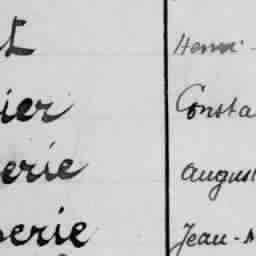 t Henri -
ier Consta
erie August
erie Jean-